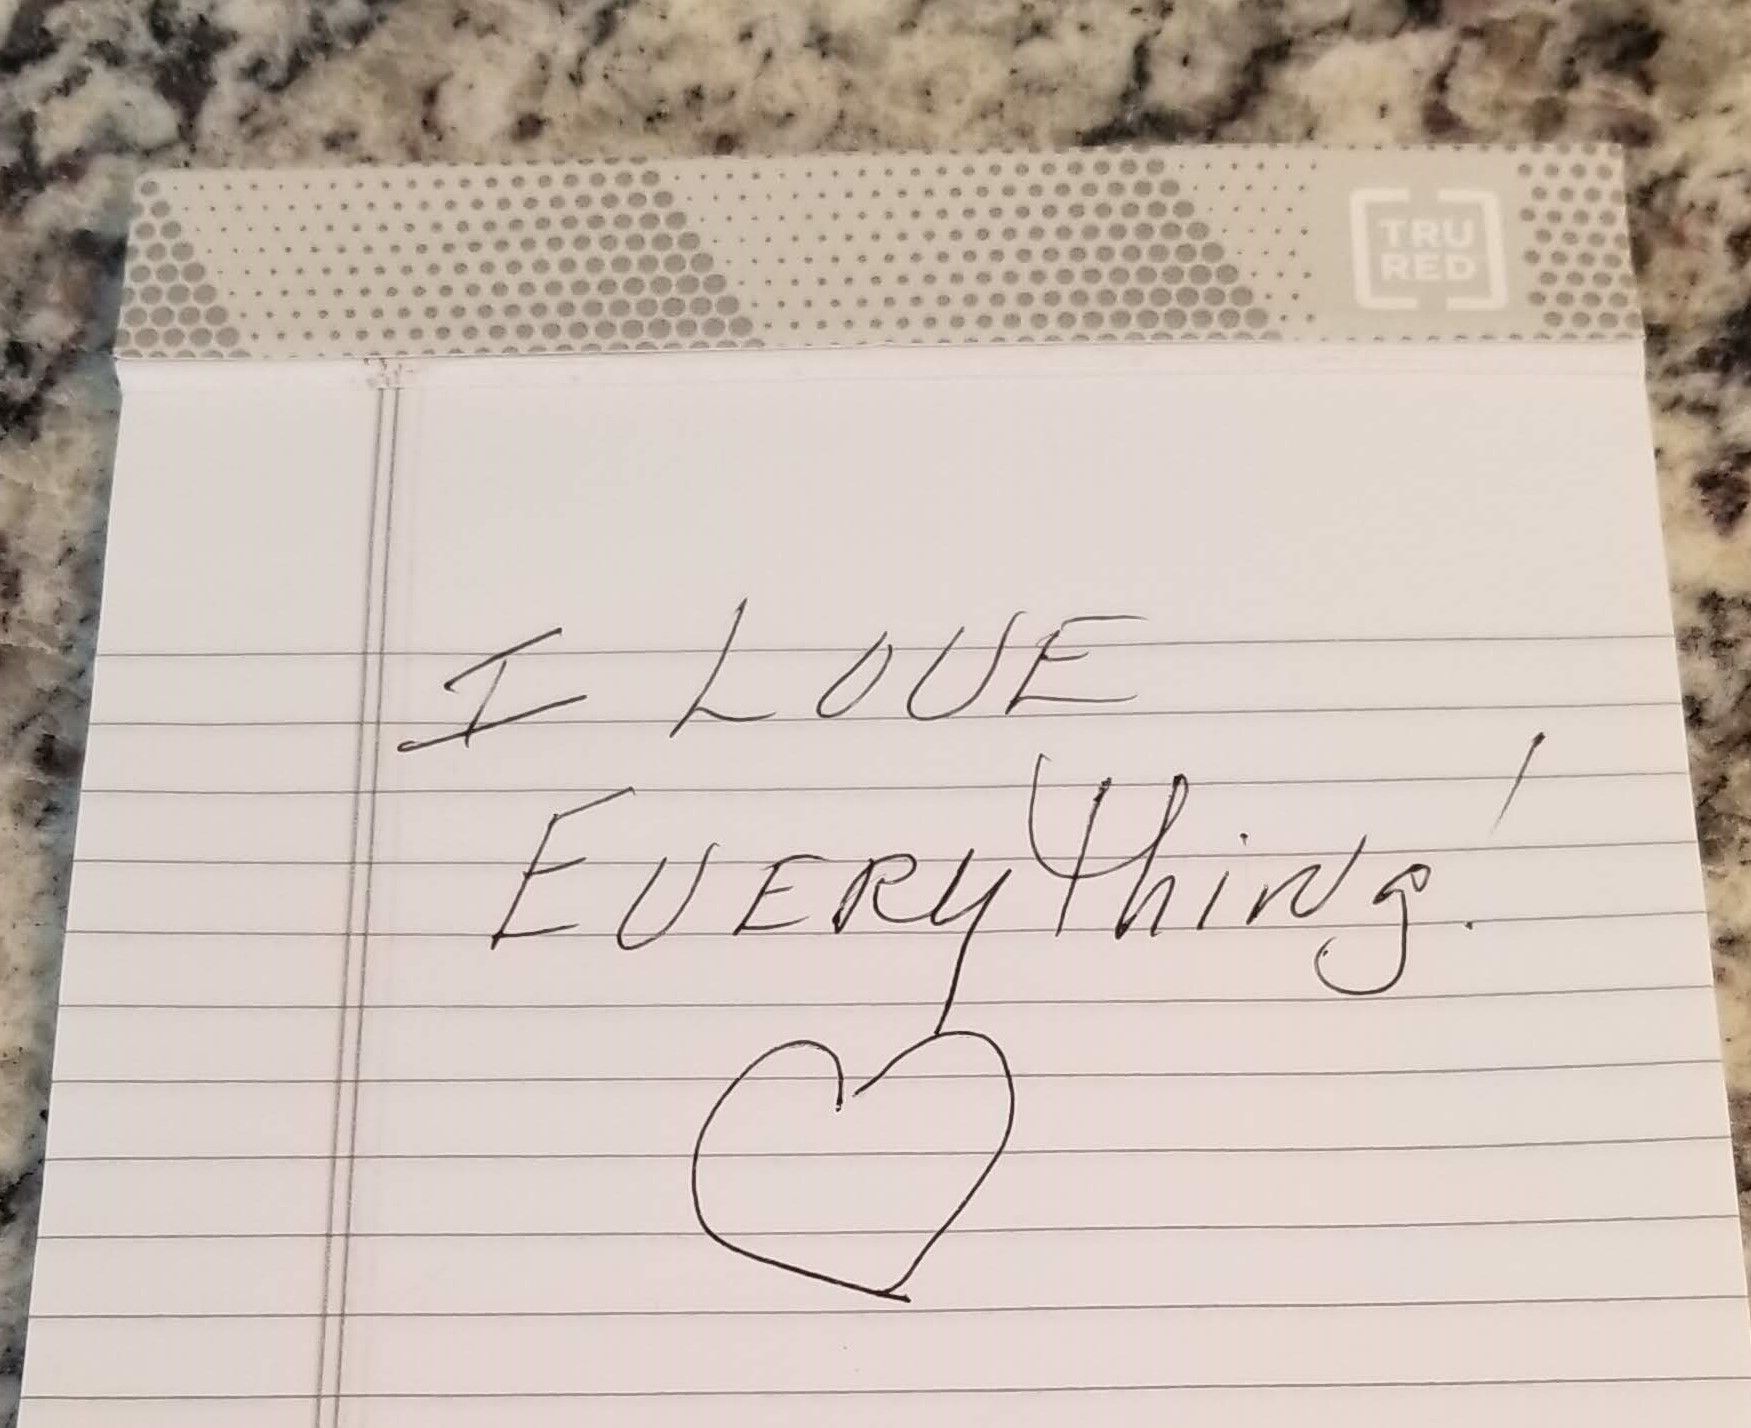 TRU
RED
I LOVE
EVERYthiNg!